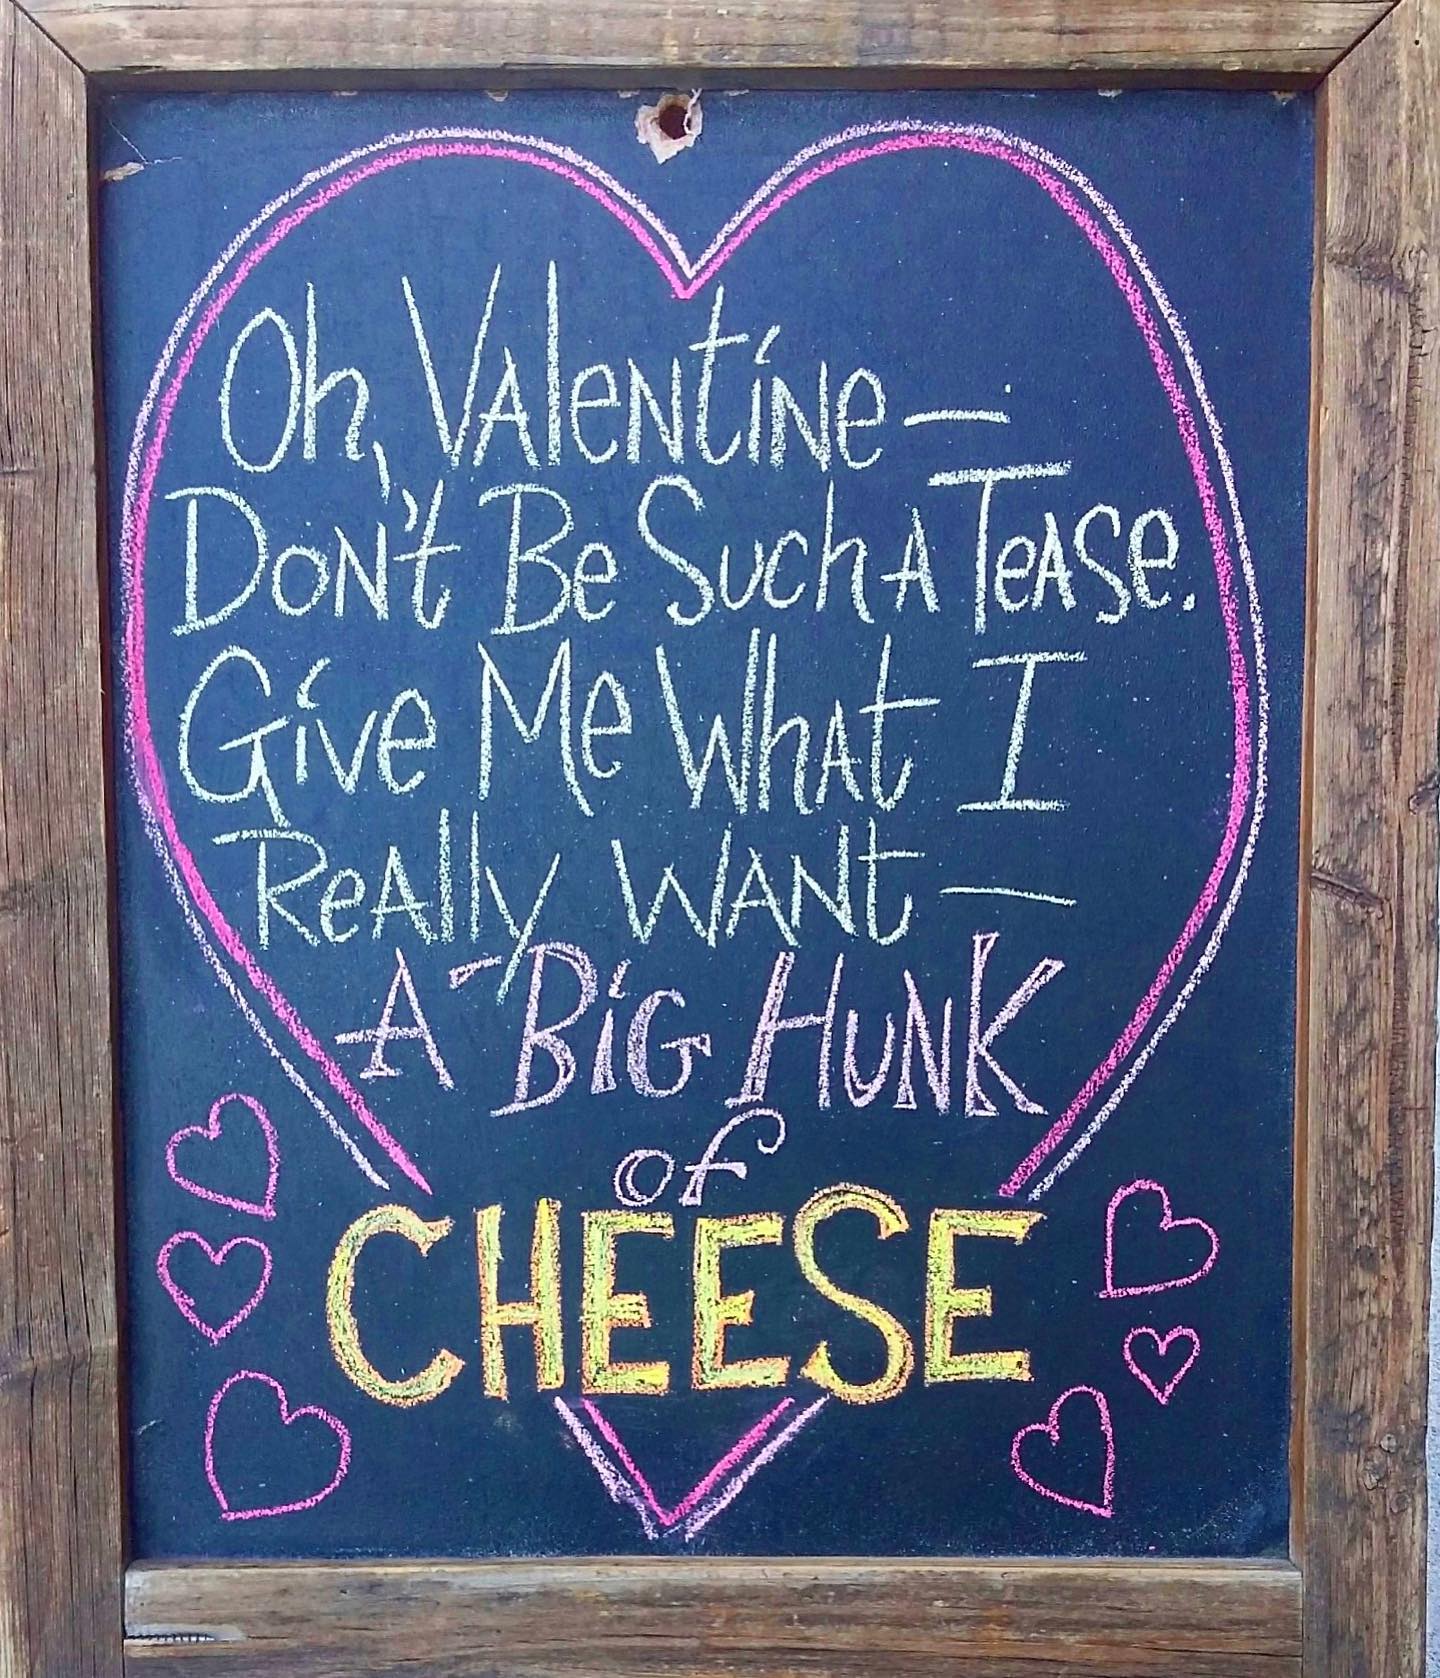 Oh, Valentine —
Don't Be Such A Tease.
Give Me What I
Really Want —
A Big Hunk
of
CHEESE